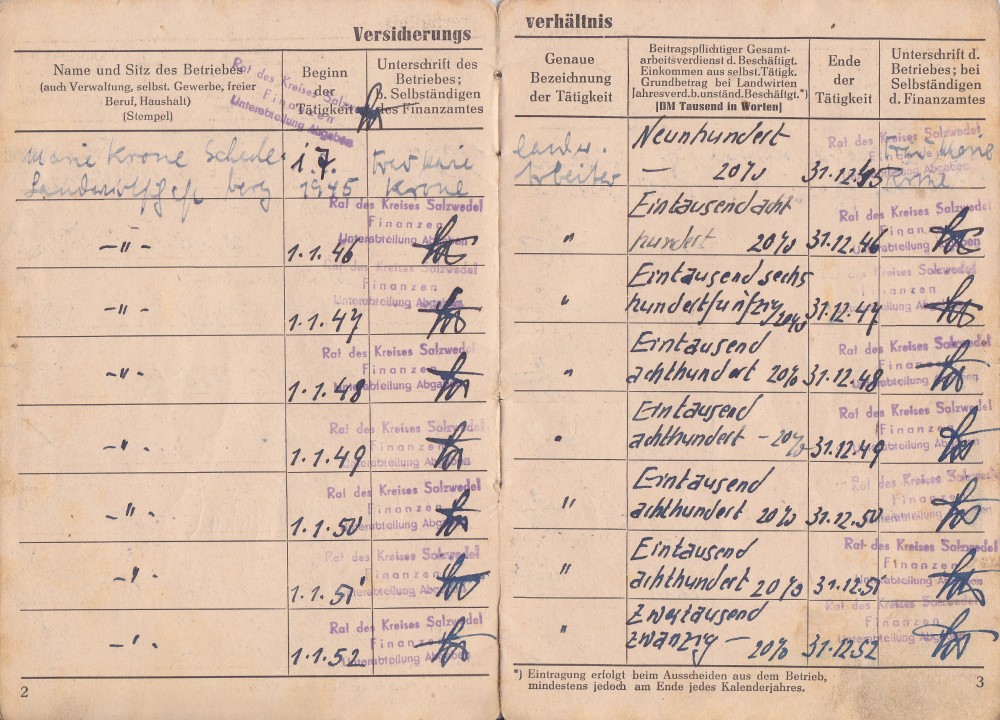 Versicherungs
Name und Sitz des Betriebes
(auch Verwaltung, selbst. Gewerbe, freier
Beruf, Haushalt)
(Stempel)
Beginn
der
Tätigkeit
Unterschrift des
Betriebes;
b. Selbständigen
des Finanzamtes
Rat des Kreises Salzwedel
Finanzen
Unterabteilung Abgaben
Marie Krone Schule
berg
1.7.
1945
Frau Marie
Krone
Rat des Kreises Salzwedel
Finanzen
Unterabteilung Abgaben
–"– 1.1.46
Rat des Kreises Salzwedel
Finanzen
Unterabteilung Abgaben
–"– 1.1.47
Rat des Kreises Salzwedel
Finanzen
Unterabteilung Abgaben
–"– 1.1.48
Rat des Kreises Salzwedel
Finanzen
Unterabteilung Abgaben
–"– 1.1.49
Rat des Kreises Salzwedel
Finanzen
Unterabteilung Abgaben
–"– 1.1.50
Rat des Kreises Salzwedel
Finanzen
Unterabteilung Abgaben
–"– 1.1.51
Rat des Kreises Salzwedel
Finanzen
Unterabteilung Abgaben
–"– 1.1.52
2
verhältnis
Genaue
Bezeichnung
der Tätigkeit
Beitragspflichtiger Gesamt-
arbeitsverdienst d. Beschäftigt.
Einkommen aus selbst. Tätigk.
Grundbetrag bei Landwirten
Jahresverd. b. unständ. Beschäftigt.*)
[DM Tausend in Worten]
Ende
der
Tätigkeit
Unterschrift d.
Betriebes; bei
Selbständigen
d. Finanzamtes
landw.
Arbeiter
Neunhundert
– 20% 31.12.45
Rat des Kreises Salzwedel
Finanzen
Unterabteilung Abgaben
Frau Marie
Krone
Eintausendacht
" hundert 20% 31.12.46
Rat des Kreises Salzwedel
Finanzen
Unterabteilung Abgaben
Eintausendsechs
" hundertfünfzig 20% 31.12.47
Rat des Kreises Salzwedel
Finanzen
Unterabteilung Abgaben
Eintausend
" achthundert 20% 31.12.48
Rat des Kreises Salzwedel
Finanzen
Unterabteilung Abgaben
Eintausend
" achthundert – 20% 31.12.49
Rat des Kreises Salzwedel
Finanzen
Unterabteilung Abgaben
Eintausend
" achthundert 20% 31.12.50
Rat des Kreises Salzwedel
Finanzen
Unterabteilung Abgaben
Eintausend
" achthundert 20% 31.12.51
Rat des Kreises Salzwedel
Finanzen
Unterabteilung Abgaben
Zweitausend
" zwanzig – 20% 31.12.52
Rat des Kreises Salzwedel
Finanzen
Unterabteilung Abgaben
*) Eintragung erfolgt beim Ausscheiden aus dem Betrieb,
mindestens jedoch am Ende jedes Kalenderjahres.
3